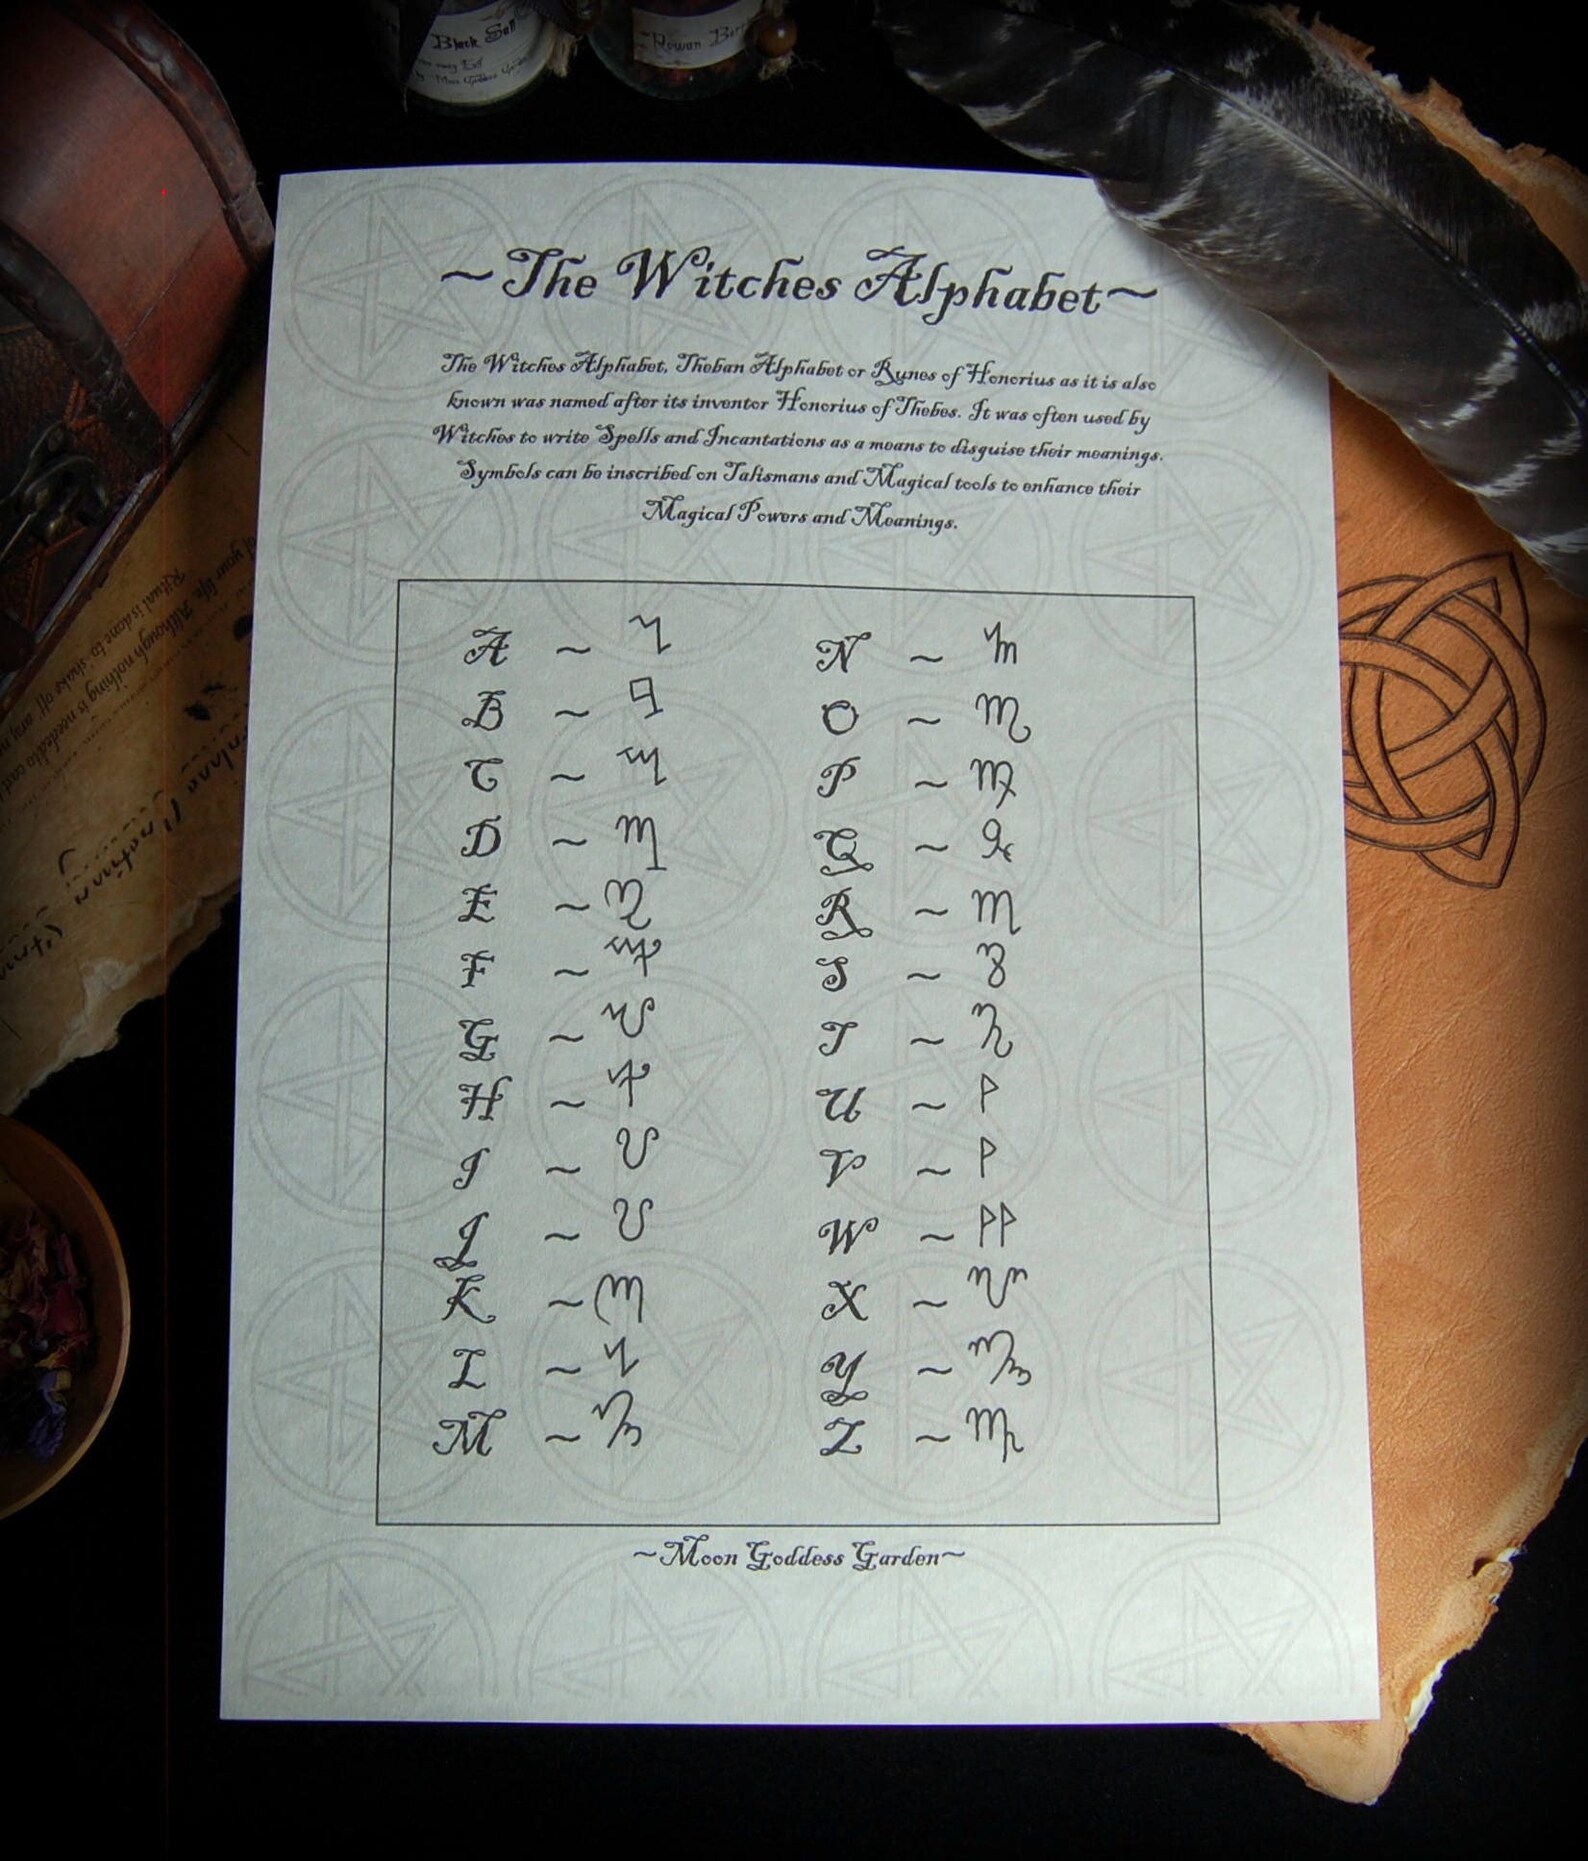 Black Salt
Rowan Berr
~The Witches Alphabet~
The Witches Alphabet, Theban Alphabet or Runes of Honorius as it is also
known was named after its inventor Honorius of Thebes. It was often used by
Witches to write Spells and Incantations as a means to disguise their meanings.
Symbols can be inscribed on Talismans and Magical tools to enhance their
Magical Powers and Meanings.
A ~
B ~
C ~
D ~
E ~
F ~
G ~
H ~
I ~
J ~
K ~
L ~
M ~
N ~
O ~
P ~
Q ~
R ~
S ~
T ~
U ~
V ~
W ~
X ~
Y ~
Z ~
~Moon Goddess Garden~
of your life. Although nothing is needed to cast
Ritual is done to 'shake off' any